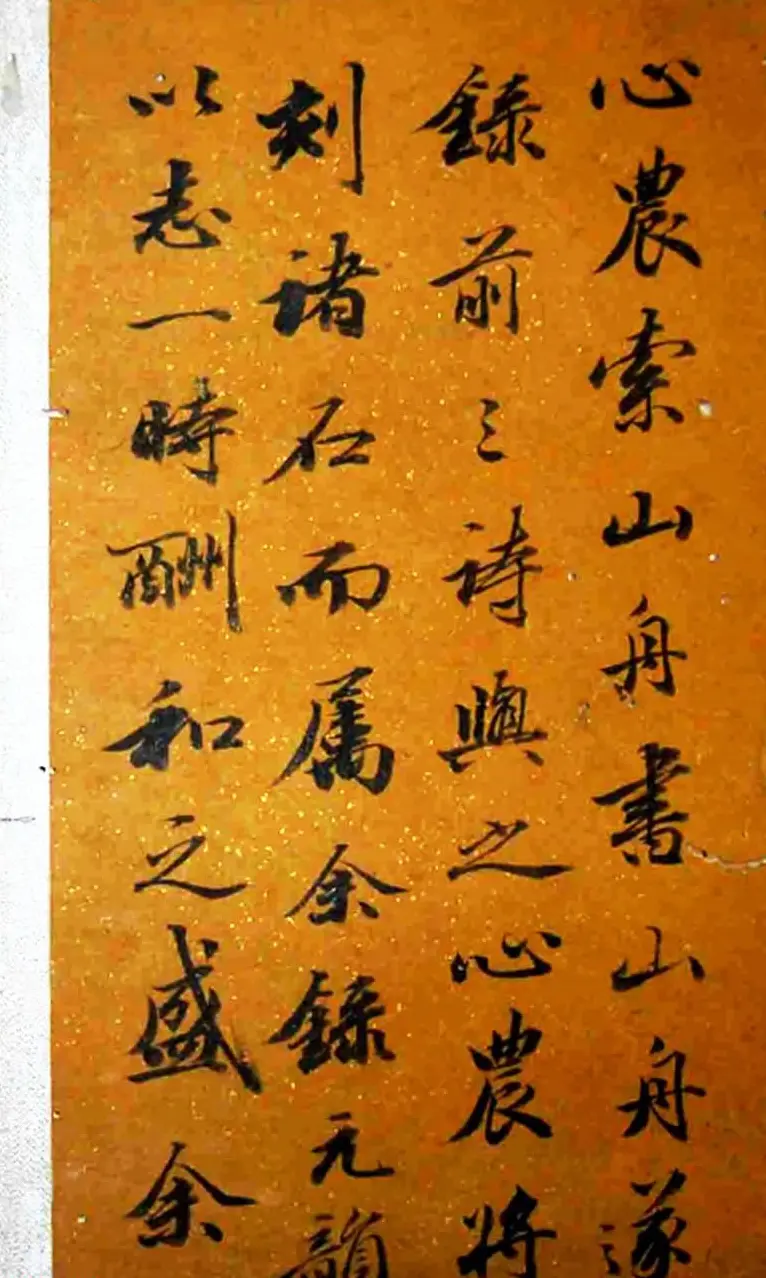 心農索山舟書山舟遂
錄前三詩與之心農將
刻諸石而属余錄元韻
以志一時酬和之盛余